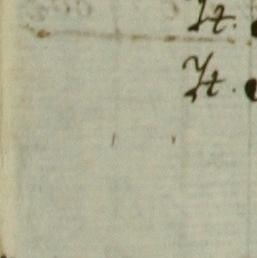 It.
It.